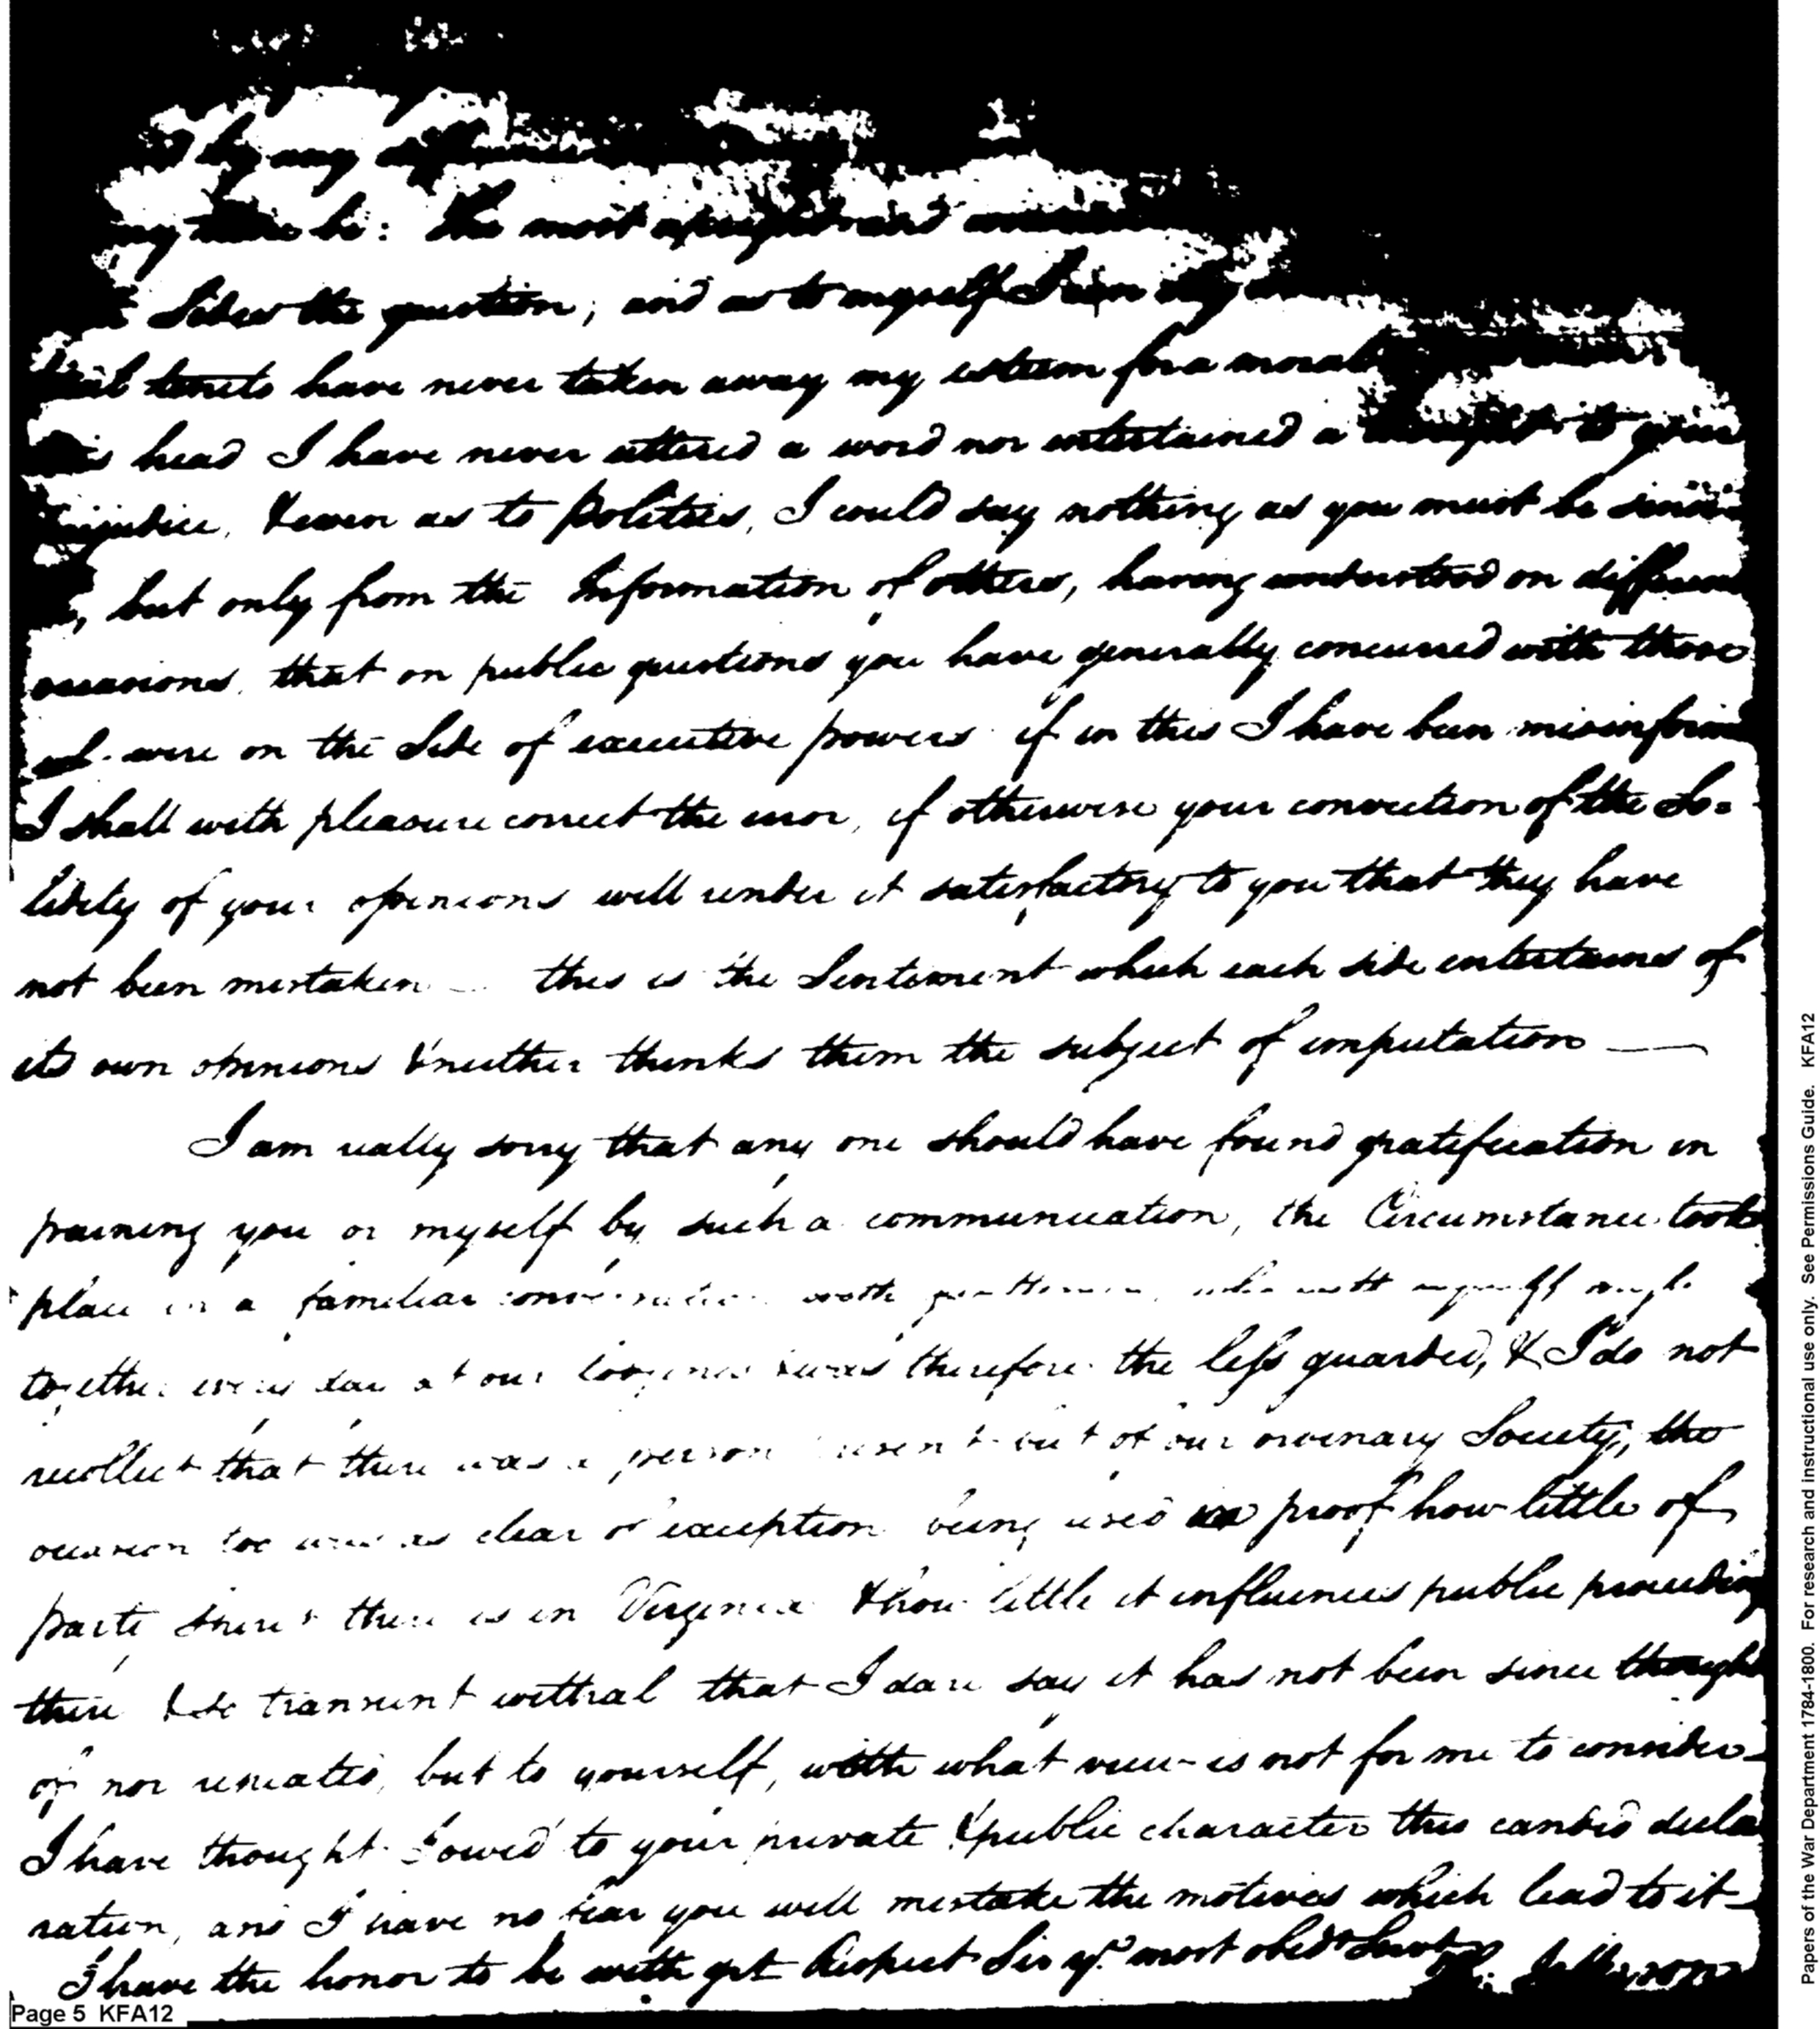 by any
be: the most upright and
sides the question; and as to myself I am
tenets have never taken away my esteem for a moral
head I have never uttered a word nor entertained a thought to your
& even as to Politics, I could say nothing as you must be
, but only from the Information of others, having understood on different
occasions, that on public questions you have generally concurred with those
were on the side of executive powers if in this I have been misinform
I shall with pleasure correct the error, if otherwise your conviction of the So=
lidity of your opinions will render it satisfactory to you that they have
not been mistaken — this is the Sentiment which each side entertains of
its own opinions & neither thinks them the subject of imputation —
I am really sorry that any one should have found gratification in
paining you or myself by such a communication, the Circumstance took
place in a familiar conversation with gentlemen, who with myself
together every day at our lodgings & was therefore the less guarded, & I do not
recollect that there was a person present but of our ordinary Society, the
occasion too was as clear of exception being used in proof how little of
party there is in Virginia & how little it influences public proceeding
there & so transient withal that I dare say it has not been since thought
of nor repeated, but to yourself, with what view is not for me to consider
I have thought I owed to your private & public character this candid decla
ration, and I have no fear you will mistake the motives which lead to it —
I have the honor to be with grt Respect Sir yr. most obedt Servt
Jefferson
Page 5 KFA12
Papers of the War Department 1784-1800. For research and instructional use only. See Permissions Guide. KFA12